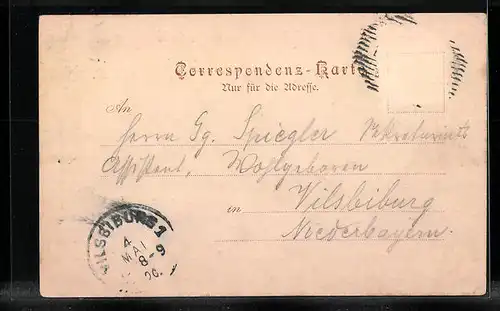 Correspondenz-Karte
Nur für die Adresse.
An
Herrn Gg. Spiegler Sekretariats
Assistent, Wohlgeboren
in Vilsbiburg
Niederbayern.
VILSBIBURG 1
4
MAI
8-9